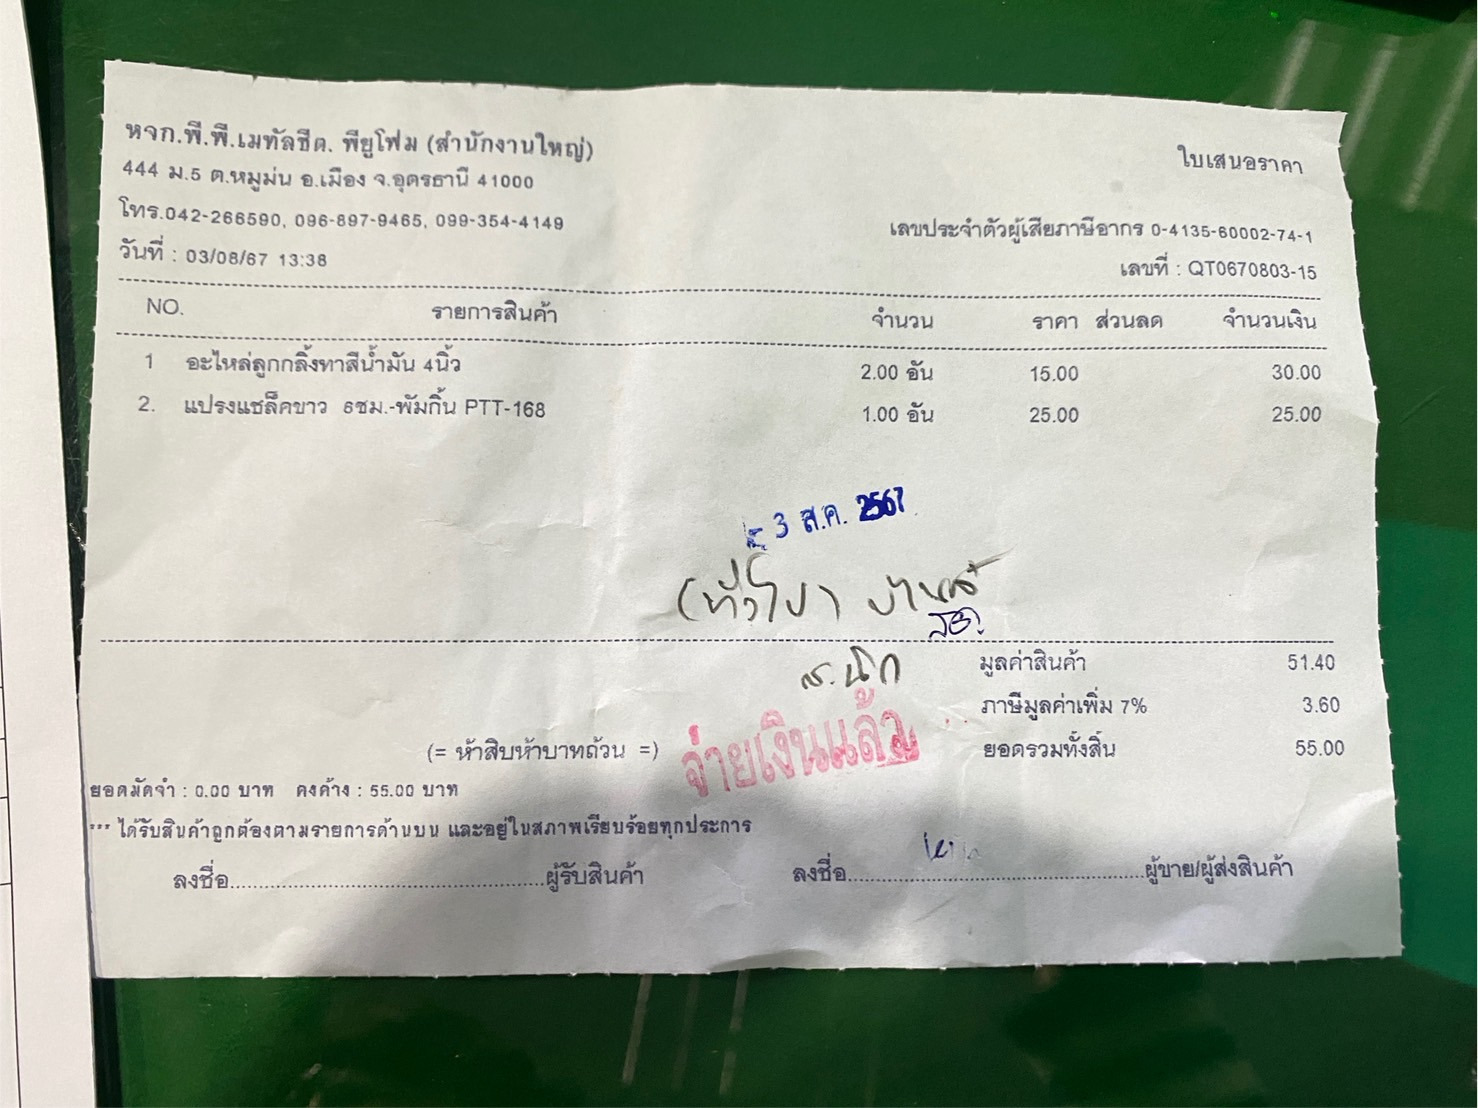 หจก.พี.พี.เมทัลชีต. พียูโฟม (สำนักงานใหญ่)
ใบเสนอราคา
444 ม.5 ต.หมูม่น อ.เมือง จ.อุดรธานี 41000
โทร.042-266590, 096-897-9465, 099-354-4149
เลขประจำตัวผู้เสียภาษีอากร 0-4135-60002-74-1
วันที่ : 03/08/67 13:38
เลขที่ : QT0670803-15
NO. รายการสินค้า จำนวน ราคา ส่วนลด จำนวนเงิน
1 อะไหล่ลูกกลิ้งทาสีน้ำมัน 4นิ้ว 2.00 อัน 15.00 30.00
2. แปรงแชล็คขาว 6ซม.-พัมกิ้น PTT-168 1.00 อัน 25.00 25.00
3 ส.ค. 2567
(ทั่วไป)
มูลค่าสินค้า 51.40
ภาษีมูลค่าเพิ่ม 7% 3.60
(= ห้าสิบห้าบาทถ้วน =) จ่ายเงินแล้ว ยอดรวมทั้งสิ้น 55.00
ยอดมัดจำ : 0.00 บาท คงค้าง : 55.00 บาท
*** ได้รับสินค้าถูกต้องตามรายการด้านบน และอยู่ในสภาพเรียบร้อยทุกประการ
ลงชื่อ..............................ผู้รับสินค้า ลงชื่อ..............................ผู้ขาย/ผู้ส่งสินค้า